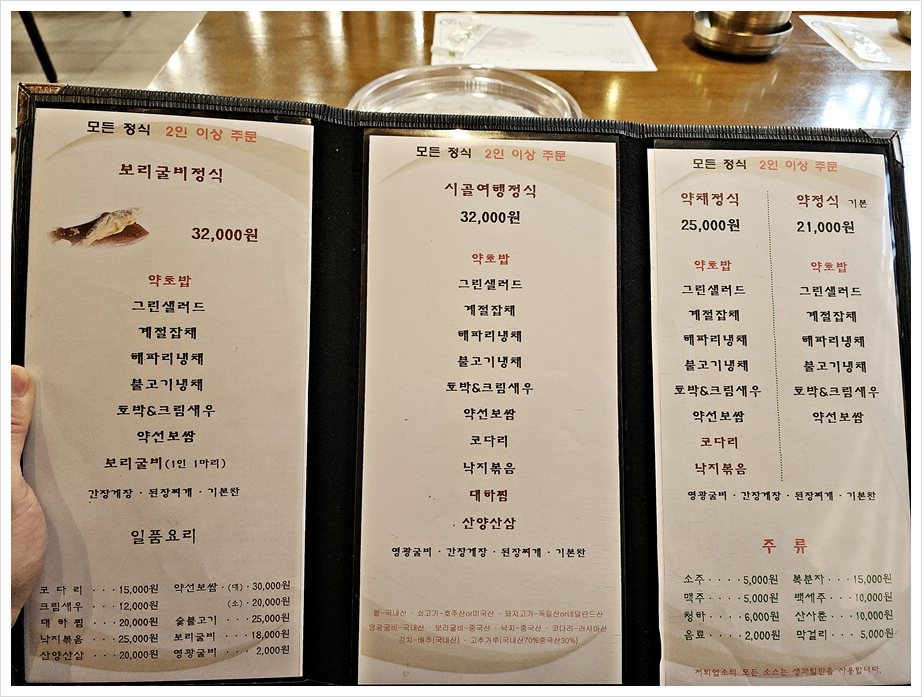 모든 정식 2인 이상 주문
보리굴비정식
32,000원
약초밥
그린샐러드
계절잡채
해파리냉채
불고기냉채
호박&크림새우
약선보쌈
보리굴비(1인 1마리)
간장게장 · 된장찌개 · 기본찬
일품요리
코 다 리 · · · 15,000원 약선보쌈 · (대) · 30,000원
크림새우 · · · 12,000원 (소) · 20,000원
대 하 찜 · · · 20,000원 숯불고기 · · · 25,000원
낙지볶음 · · · 25,000원 보리굴비 · · · 18,000원
산양산삼 · · · 20,000원 영광굴비 · · · 2,000원
모든 정식 2인 이상 주문
시골여행정식
32,000원
약초밥
그린샐러드
계절잡채
해파리냉채
불고기냉채
호박&크림새우
약선보쌈
코다리
낙지볶음
대하찜
산양산삼
영광굴비 · 간장게장 · 된장찌개 · 기본찬
쌀-국내산 · 쇠고기-호주산or미국산 · 돼지고기-독일산or네덜란드산
영광굴비-국내산 · 보리굴비-중국산 · 낙지-중국산 · 코다리-러시아산
김치-배추(국내산) · 고추가루(국내산70%중국산30%)
모든 정식 2인 이상 주문
약채정식 약정식 기본
25,000원 21,000원
약초밥 약초밥
그린샐러드 그린샐러드
계절잡채 계절잡채
해파리냉채 해파리냉채
불고기냉채 불고기냉채
호박&크림새우 호박&크림새우
약선보쌈 약선보쌈
코다리
낙지볶음
영광굴비 · 간장게장 · 된장찌개 · 기본찬
주 류
소주 · · · · 5,000원 복분자 · · · 15,000원
맥주 · · · · 5,000원 백세주 · · · 10,000원
청하 · · · · 6,000원 산사춘 · · · 10,000원
음료 · · · · 2,000원 막걸리 · · · 5,000원
저희업소의 모든 소스는 생과일만을 사용합니다.